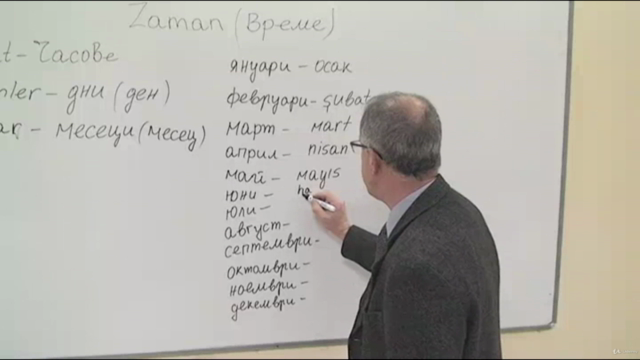 Zaman (Време)
t - Часове
ler - дни (ден)
ar - месеци (месец)
януари - осак
февруари - şubat
март - mart
април - nisan
май - mayıs
юни - ha
юли -
август -
септември -
октомври -
ноември -
декември -